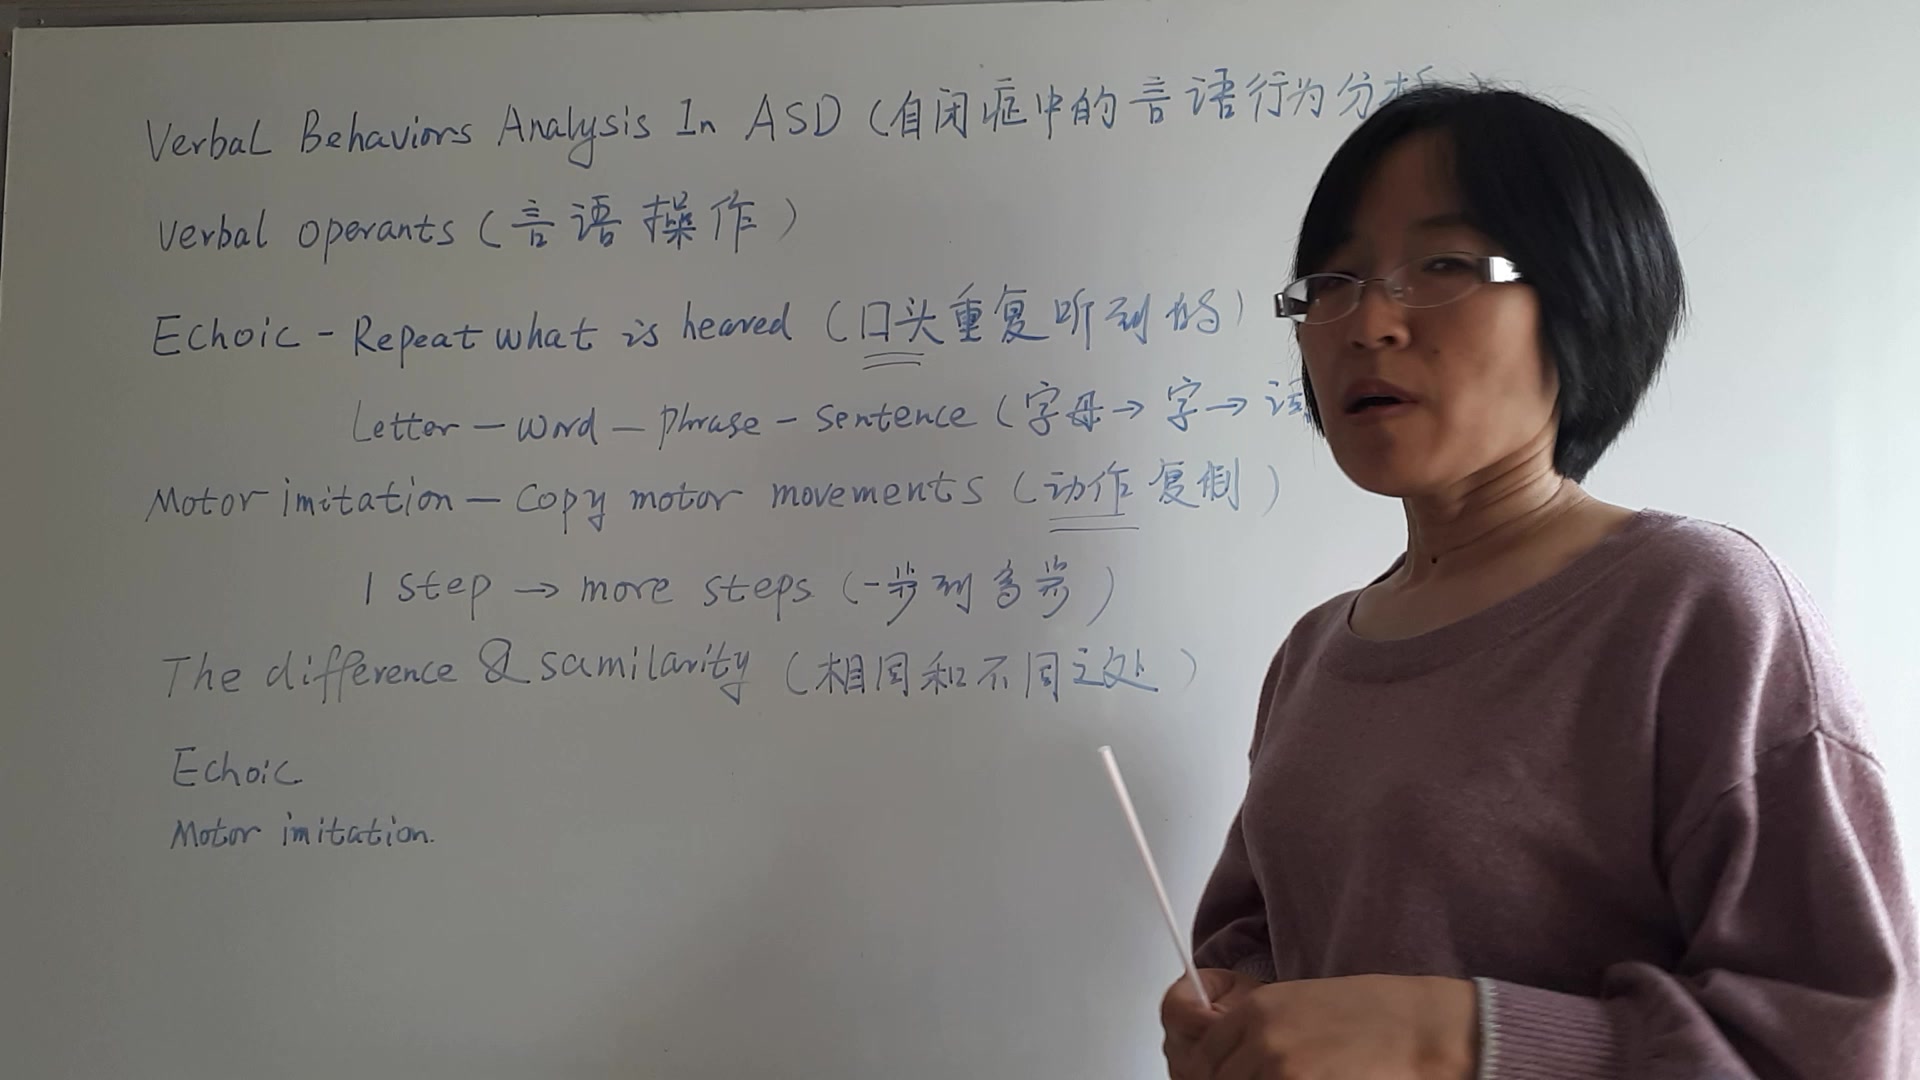 Verbal Behaviors Analysis In ASD (自闭症中的言语行为分析)
Verbal operants (言语操作)
Echoic - Repeat what is heared (口头重复听到的)
Letter - word - phrase - sentence (字母→字→
Motor imitation - copy motor movements (动作复制)
1 step → more steps (一步到多步)
The difference & samilarity (相同和不同之处)
Echoic
Motor imitation.